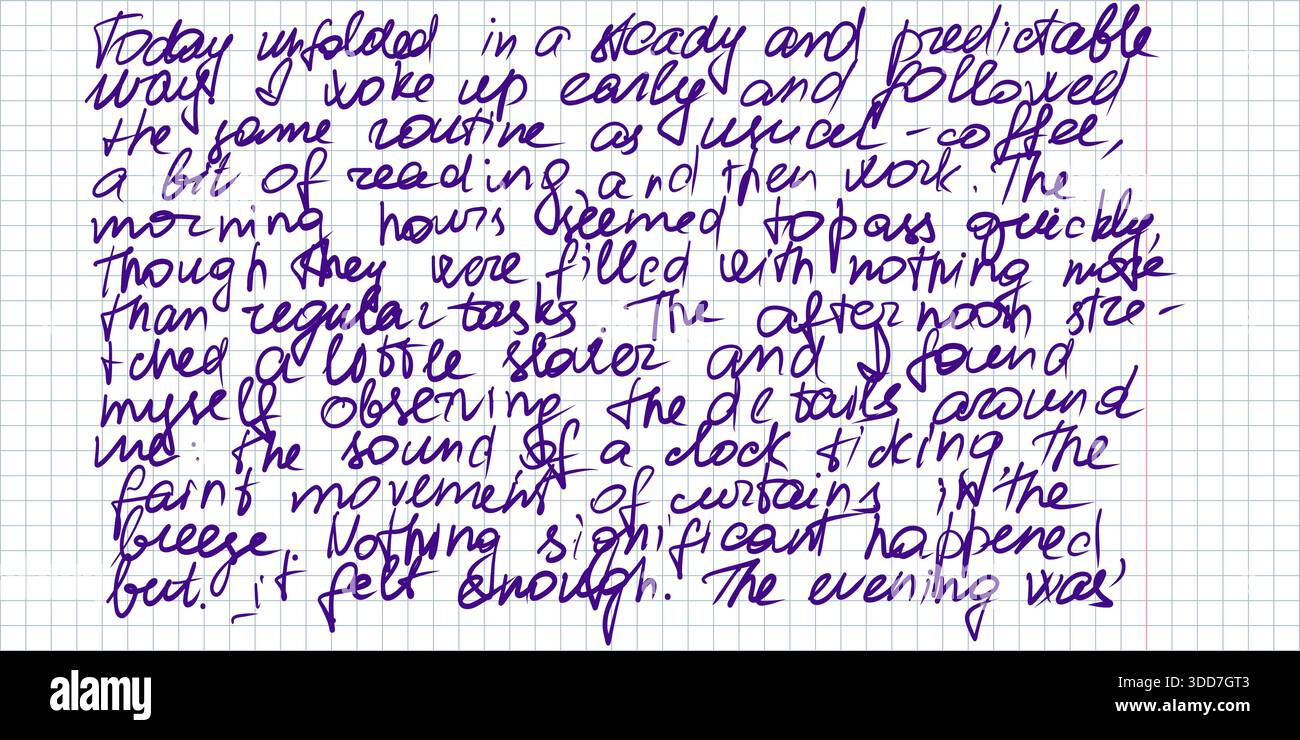 Today unfolded in a steady and predictable
way. I woke up early and followed
the same routine as usual - coffee,
a bit of reading, and then work. The
morning hours seemed to pass quickly,
though they were filled with nothing more
than regular tasks. The afternoon stre-
tched a little slower and I found
myself observing the details around
me: the sound of a clock ticking, the
faint movement of curtains in the
breeze. Nothing significant happened,
but. it felt enough. The evening was
alamy
Image ID: 3DD7GT3
www.alamy.com